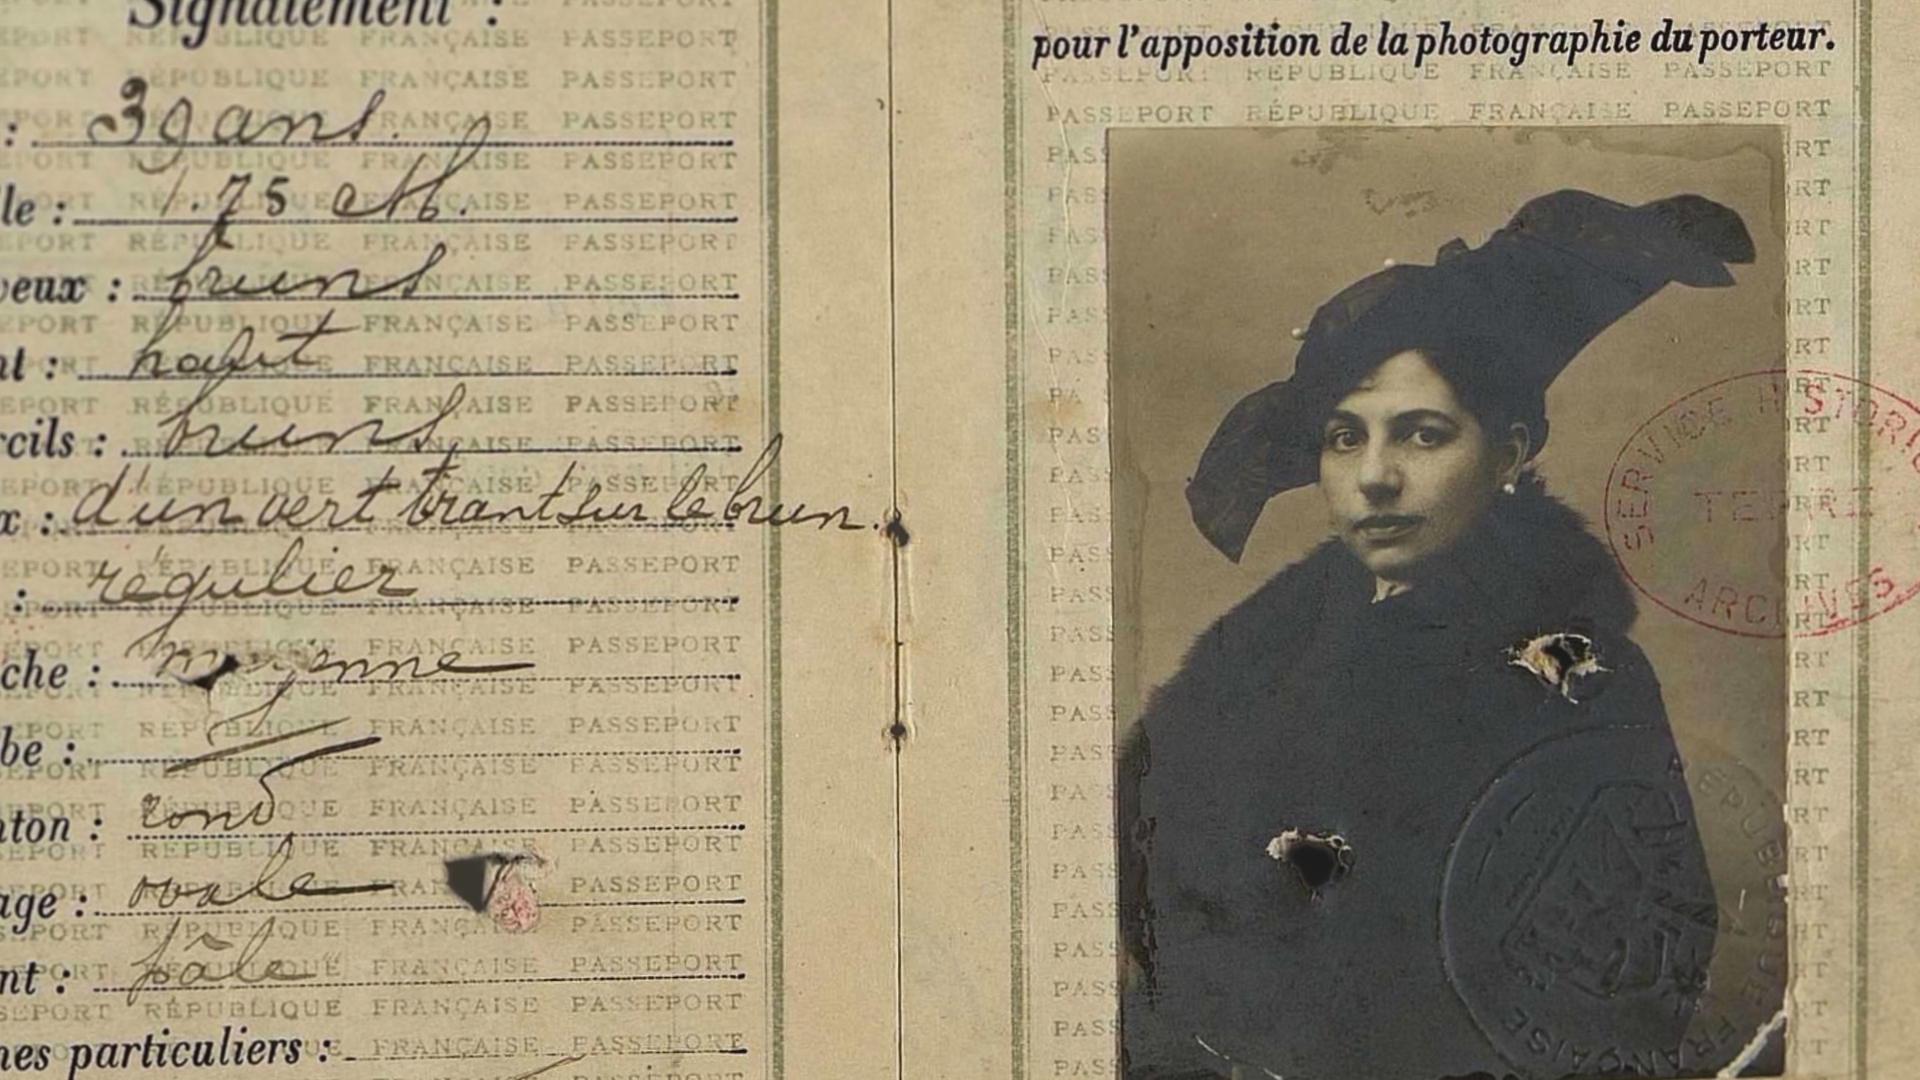 Signalement :
: 39 ans.
le : 1.75 cM.
veux : bruns
nt : haut
rcils : bruns
x : d'un vert tirant sur le brun.
: régulier
che : moyenne
be :
nton : rond
age : ovale
nt : pâle
nes particuliers :
pour l'apposition de la photographie du porteur.
PASSEPORT RÉPUBLIQUE FRANÇAISE PASSEPORT
SERVICE HISTORI
TERRE
ARCHIVES
RÉPUBLIQUE FRANÇAISE